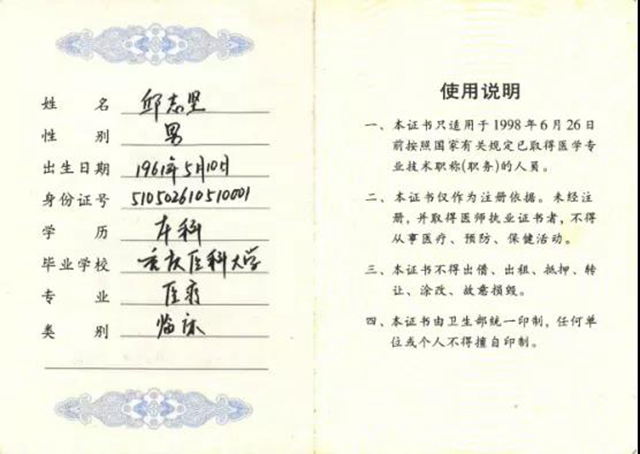 姓 名 邱志坚
性 别 男
出生日期 1961年5月10日
身份证号 510502610510001
学 历 本科
毕业学校 重庆医科大学
专 业 医疗
类 别 临床
使用说明
一、本证书只适用于1998年6月26日
前按照国家有关规定已取得医学专
业技术职称(职务)的人员。
二、本证书仅作为注册依据。未经注
册,并取得医师执业证书者,不得
从事医疗、预防、保健活动。
三、本证书不得出借、出租、抵押、转
让、涂改、故意损毁。
四、本证书由卫生部统一印制,任何单
位或个人不得擅自印制。